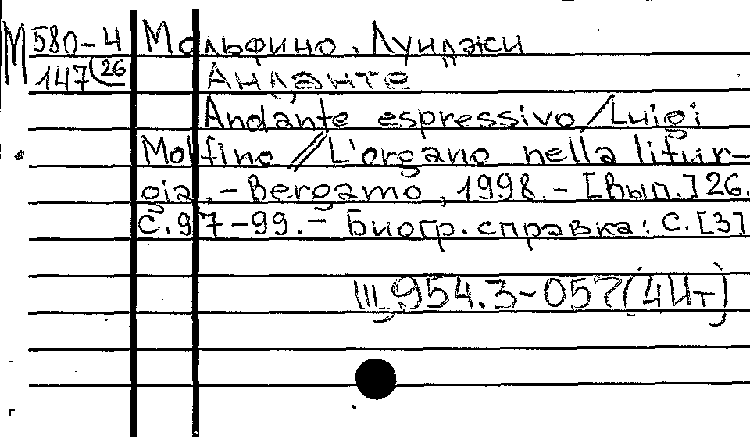 М 580-4 Мольфино, Луиджи
147(26 Анданте
Andante espressivo/Luigi
Molfino // L'organo nella litur-
gia. - Bergamo, 1998. - [Вып.] 26.
С. 97-99. - Биогр. справка: С. [3]
Щ954.3-057(4Ит)